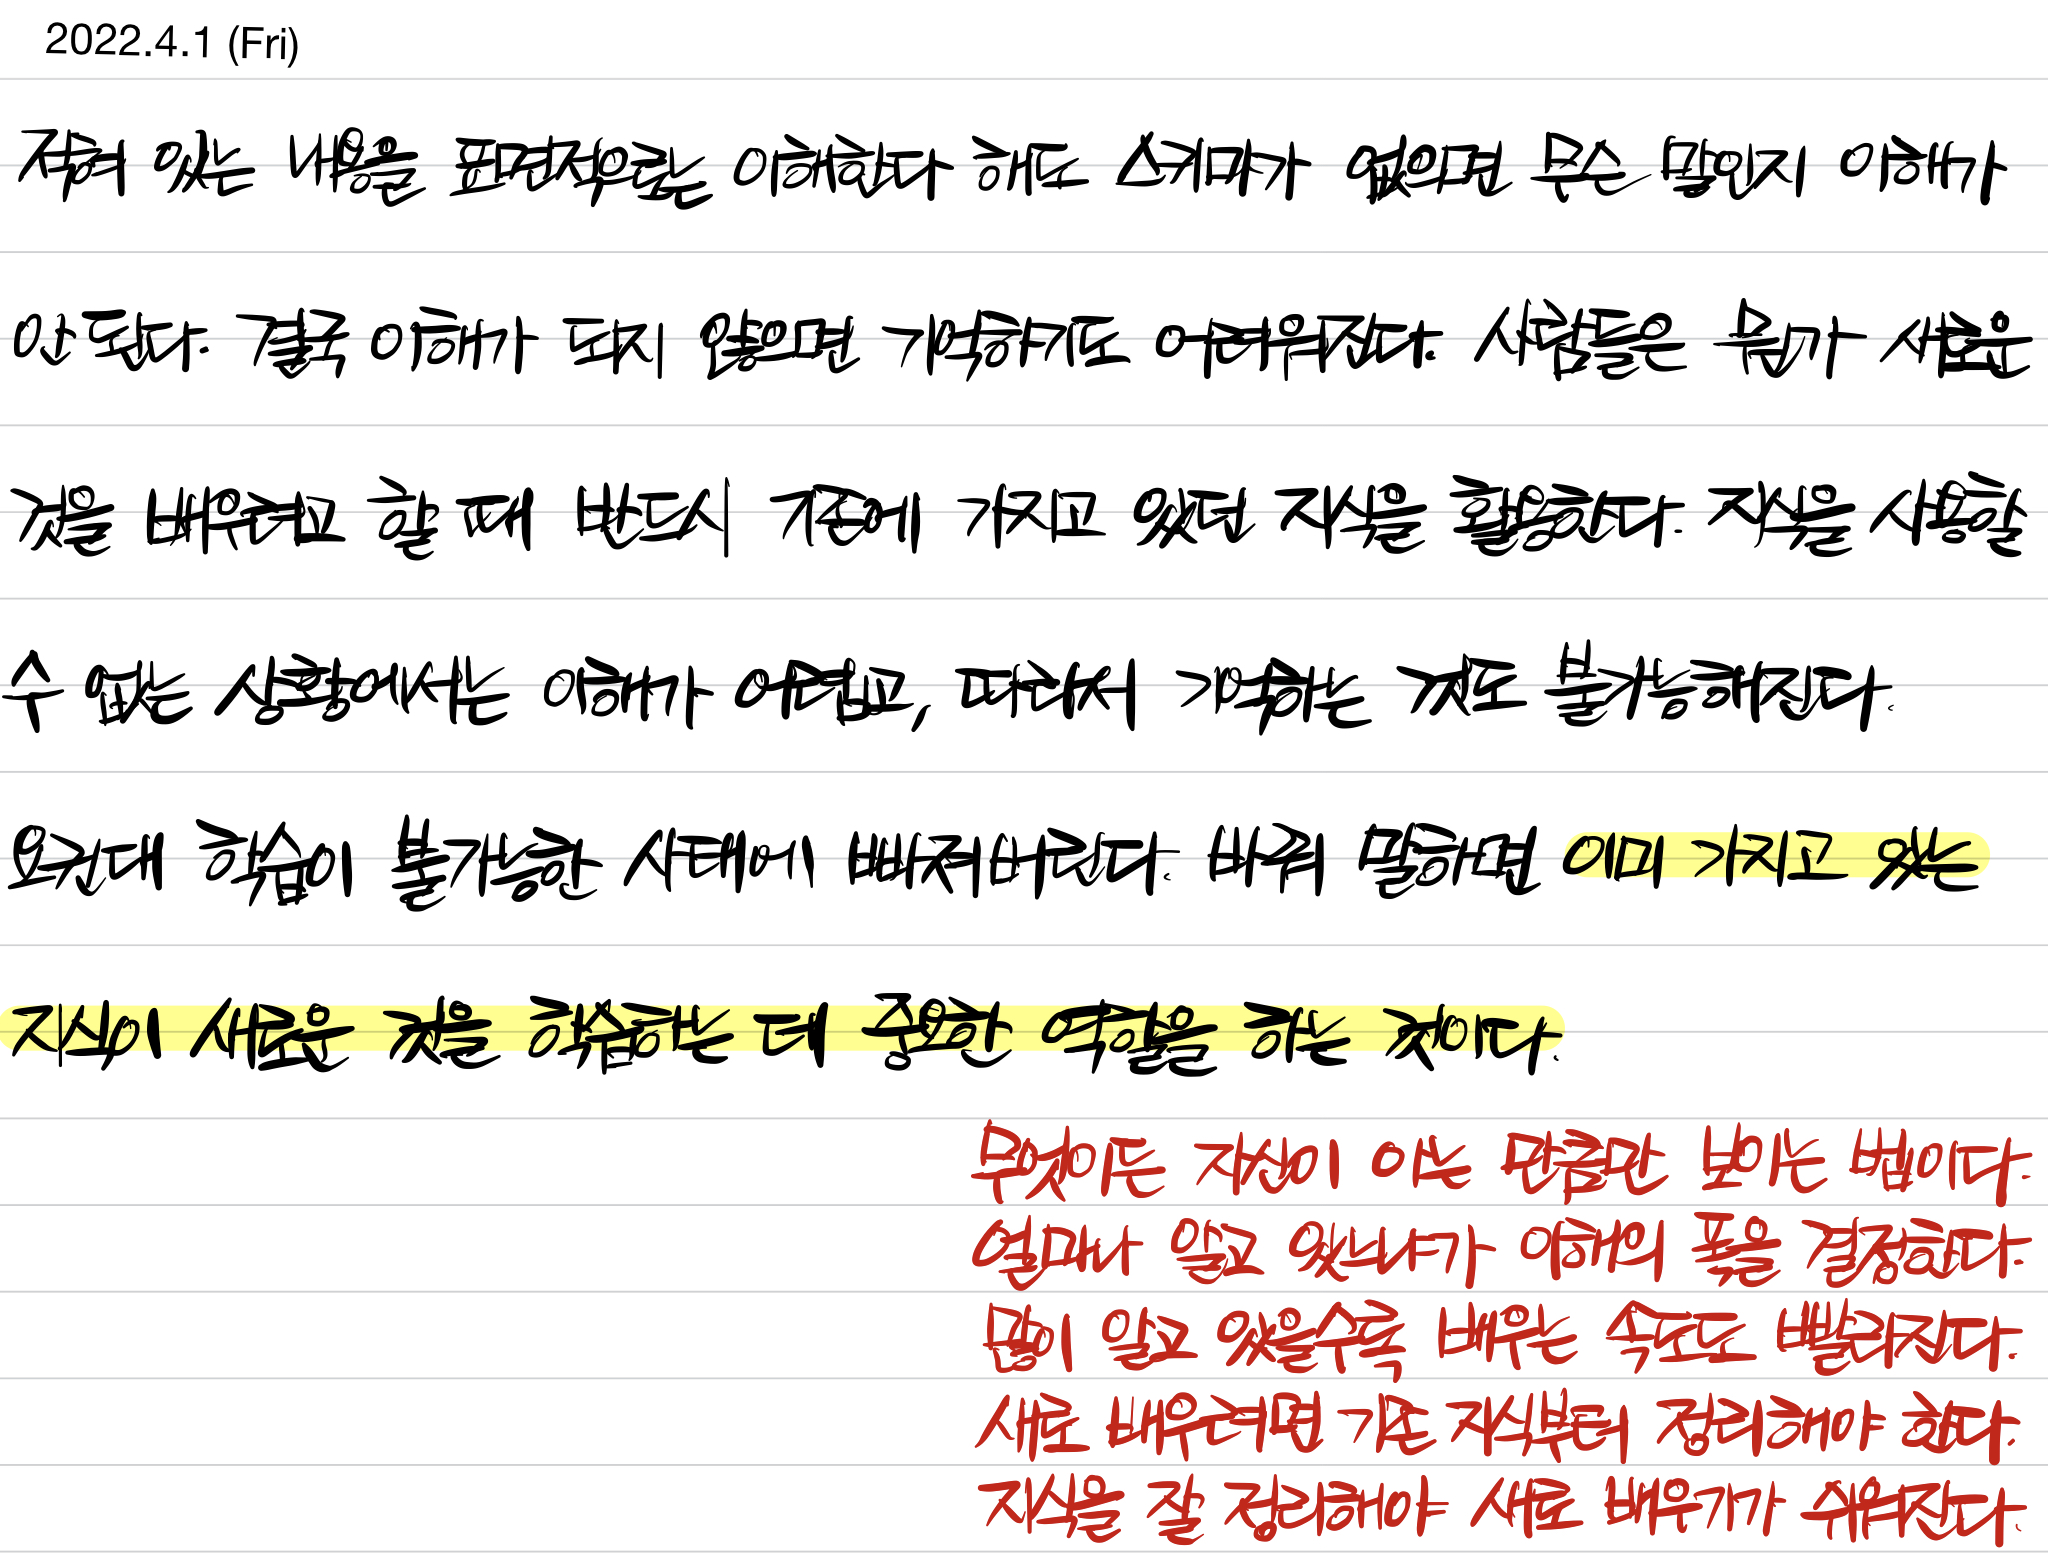 2022.4.1 (Fri)
적혀 있는 내용을 표면적으로는 이해한다 해도 스키마가 없으면 무슨 말인지 이해가
안 된다. 결국 이해가 되지 않으면 기억하기도 어려워진다. 사람들은 뭔가 새로운
것을 배우려고 할 때 반드시 기존에 가지고 있던 지식을 활용한다. 지식을 사용할
수 없는 상황에서는 이해가 어렵고, 따라서 기억하는 것도 불가능해진다.
요컨대 학습이 불가능한 사태에 빠져버린다. 바꿔 말하면 이미 가지고 있는
지식이 새로운 것을 학습하는 데 중요한 역할을 하는 것이다.
무엇이든 자신이 아는 만큼만 보이는 법이다.
얼마나 알고 있느냐가 이해의 폭을 결정한다.
많이 알고 있을수록 배우는 속도도 빨라진다.
새로 배우려면 기존 지식부터 정리해야 한다.
지식을 잘 정리해야 새로 배우기가 쉬워진다.